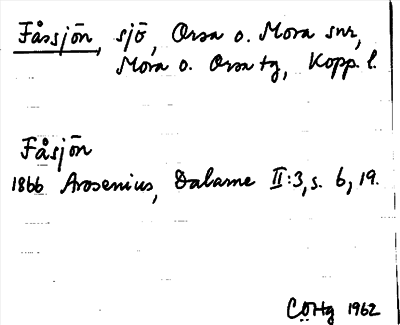 Fåssjön, sjö, Orsa o. Mora snr,
Mora o. Orsa tg, Kopp. l.
Fåsjön
1866 Arosenius, Dalarne II:3, s. 6, 19.
CÖHg 1962